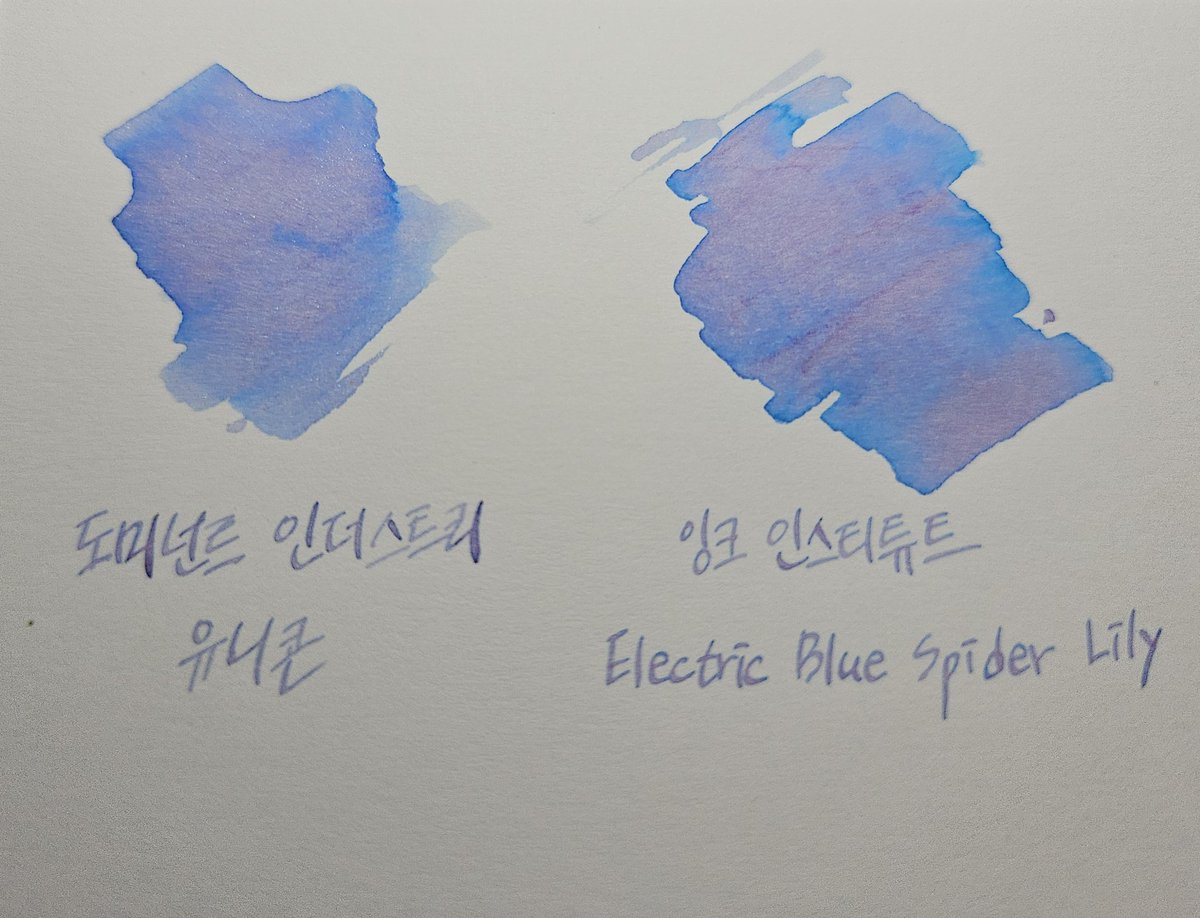 도미넌트 인더스트리
유니콘
잉크 인스티튜트
Electric Blue Spider Lily